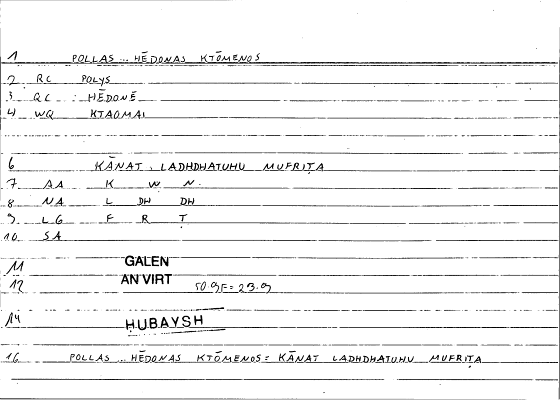 1 POLLAS ... HĒDONAS KTŌMENOS
2 RC POLYS
3 QC : HĒDONĒ
4 WQ KTAOMAI
6 KĀNAT LADHDHATUHU MUFRIṬA
7 AA K W N
8 NA L DH DH
9 LG F R Ṭ
10 SA
11 GALEN
12 AN VIRT 50.9F= 23.9
14 ḤUBAYSH
16 POLLAS ... HĒDONAS KTŌMENOS = KĀNAT LADHDHATUHU MUFRIṬA